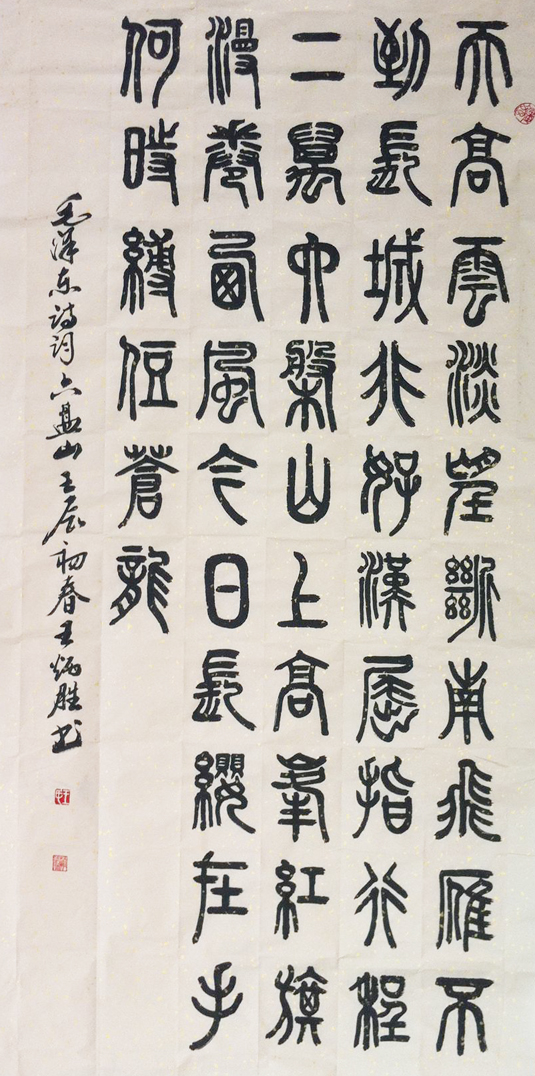 天高雲淡望斷南飛雁不
到長城非好漢屈指行程
二萬六盤山上高峯紅旗
漫卷西風今日長纓在手
何時縛住蒼龍
毛泽东诗词六盘山壬辰初春王炳胜书